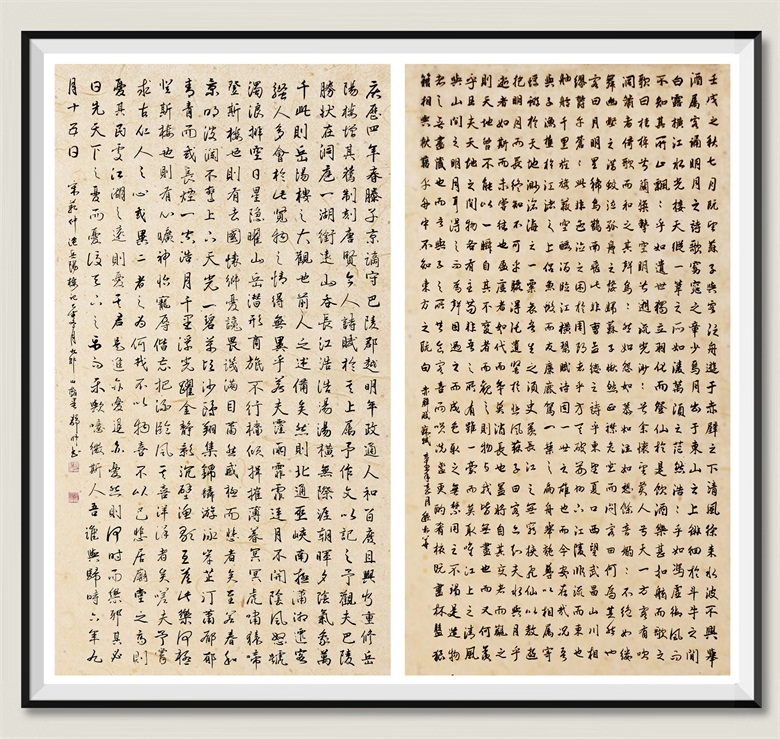 壬戌之秋七月既望蘇子與客泛舟遊于赤壁之下清風徐來水波不興舉
酒屬客誦明月之詩歌窈窕之章少焉月出于東山之上徘徊於斗牛之間
白露橫江水光接天縱一葦之所如凌萬頃之茫然浩浩乎如馮虛御風而
不知其所止飄飄乎如遺世獨立羽化而登仙於是飲酒樂甚扣舷而歌之
歌曰桂棹兮蘭槳擊空明兮溯流光渺渺兮余懷望美人兮天一方客有吹
洞簫者倚歌而和之其聲嗚嗚然如怨如慕如泣如訴餘音嫋嫋不絕如縷
舞幽壑之潛蛟泣孤舟之嫠婦蘇子愀然正襟危坐而問客曰何為其然也
客曰月明星稀烏鵲南飛此非曹孟德之詩乎東望夏口西望武昌山川相
繆鬱乎蒼蒼此非孟德之困於周郎者乎方其破荊州下江陵順流而東也
舳艫千里旌旗蔽空釃酒臨江橫槊賦詩固一世之雄也而今安在哉況吾
與子漁樵於江渚之上侶魚蝦而友麋鹿駕一葉之扁舟舉匏尊以相屬寄
蜉蝣於天地渺滄海之一粟哀吾生之須臾羨長江之無窮挾飛仙以遨遊
抱明月而長終知不可乎驟得託遺響於悲風蘇子曰客亦知夫水與月乎
逝者如斯而未嘗往也盈虛者如代而卒莫消長也蓋將自其變者而觀之
則天地曾不能以一瞬自其不變者而觀之則物與我皆無盡也而又何羨
乎且夫天地之間物各有主苟非吾之所有雖一毫而莫取惟江上之清風
與山間之明月耳得之而為聲目遇之而成色取之無禁用之不竭是造物
者之無盡藏也而吾與子之所共食客喜而笑洗盞更酌肴核既盡杯盤狼
籍相與枕藉乎舟中不知東方之既白 赤壁賦 蘇軾
慶歷四年春滕子京謫守巴陵郡越明年政通人和百廢具興乃重修岳
陽樓增其舊制刻唐賢今人詩賦於其上屬予作文以記之予觀夫巴陵
勝狀在洞庭一湖銜遠山吞長江浩浩湯湯橫無際涯朝暉夕陰氣象萬
千此則岳陽樓之大觀也前人之述備矣然則北通巫峽南極瀟湘遷客
騷人多會於此覽物之情得無異乎若夫霪雨霏霏連月不開陰風怒號
濁浪排空日星隱曜山岳潛形商旅不行檣傾楫摧薄暮冥冥虎嘯猿啼
登斯樓也則有去國懷鄉憂讒畏譏滿目蕭然感極而悲者矣至若春和
景明波瀾不驚上下天光一碧萬頃沙鷗翔集錦鱗游泳岸芷汀蘭郁郁
青青而或長煙一空浩月千里浮光躍金靜影沉璧漁歌互答此樂何極
登斯樓也則有心曠神怡寵辱偕忘把酒臨風其喜洋洋者矣嗟夫予嘗
求古仁人之心或異二者之為何哉不以物喜不以己悲居廟堂之高則
憂其民處江湖之遠則憂其君是進亦憂退亦憂然則何時而樂耶其必
曰先天下之憂而憂後天下之樂而樂歟噫微斯人吾誰與歸時六年九
月十五日 宋范仲淹岳陽樓記